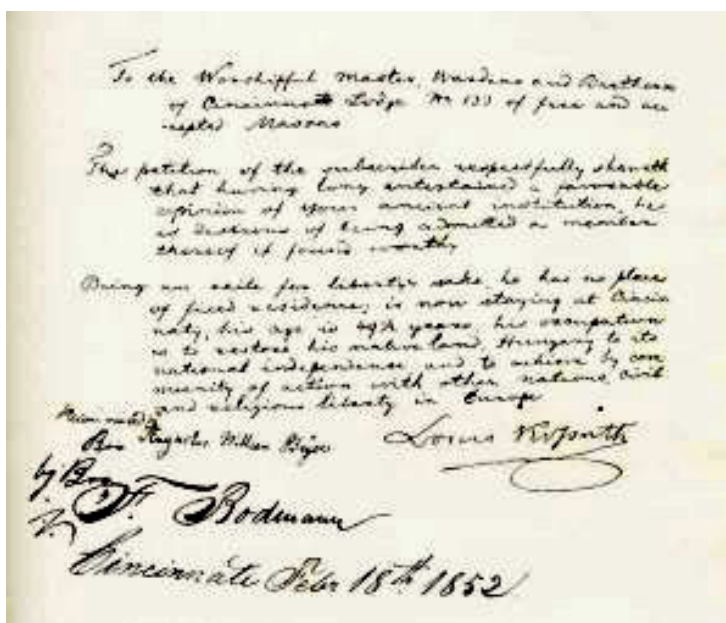 To the Worshipful Master, Wardens and Brethren
of Cincinnati Lodge No 133 of free and ac
cepted Masons
The petition of the subscriber respectfully sheweth
that having long entertained a favourable
opinion of your ancient institution, he
is desirous of being admitted a member
thereof if found worthy
Being an exile for liberty's sake, he has no place
of fixed residence, is now staying at Cincin
naty, his age is 49½ years, his occupation
is to restore his native land, Hungary to its
national independence, and to achieve by com
munity of action with other nations, civil
and religious liberty in Europe
Louis Kossuth
Bro
by Bro
F. Bodmann
Cincinnati Febr 18th 1852